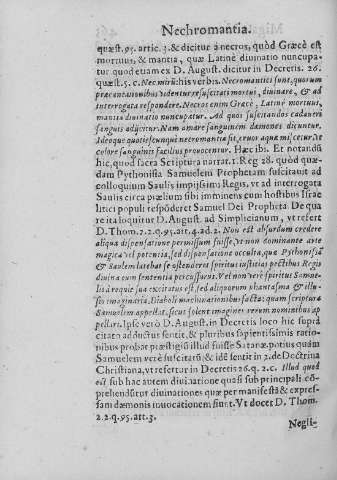 Nechromantia.
quæst. 95. artic. 3. & dicitur à necros, quòd Græcè est
mortuus, & mantia, quæ Latinè diuinatio nuncupa-
tur quod etiam ex D. August. dicitur in Decretis. 26.
quæst. 5. c. Nec mirũ: his verbis. Necromantici sunt, quorum
præcantationibus videntur resuscitati mortui, diuinare, & ad
interrogata respondere. Necros enim Græcè, Latinè mortuus,
mantia diuinatio nuncupatur. Ad quos suscitandos cadaueri
sanguis adijcitur. Nam amare sanguinem dæmones dicuntur.
Ideoque quotiescunque necromantia fit, cruor aquæ miscetur, vt
colore sanguinis facilius prouocentur. Hæc ibi. Et notandũ
hic, quod sacra Scriptura narrat. 1. Reg 28. quòd quæ-
dam Pythonissa Samuelem Prophetam suscitauit ad
colloquium Saulis impijssimi Regis, vt ad interrogata
Saulis circa prælium sibi imminens cum hostibus Israe
litici populi responderet Samuel Dei Propheta. De qua
re ita loquitur D. August. ad Simplicianum, vt refert
D. Thom. 2. 2. q. 95. art. 4. ad 2. Non est absurdum credere
aliqua dispensatione permissum fuisse, vt non dominante arte
magica vel potentia, sed dispensatione occulta, quæ Pythonissã
& Saulem latebat se ostenderet spiritus iustias pectibus Regis
diuina eum sententia percussuri. Vel non verè spiritus Samue-
lis à requie sua excitatus est, sed aliquorum phantasma & illu-
sio imaginaria, Diaboli machinationibus facta: quam scriptura
Samuelem appellat, sicut solent imagines rerum nominibus ap
pellari. Ipse verò D. August. in Decretis loco hic suprà
citato adductus sentit, & pluribus sapientissimis ratio-
nibus probat præstigiũ fuisse Satanæ, potius quàm
Samuelem verè suscitatũ; & idẽ sentit in 2. de Doctrina
Christiana, vt refertur in Decretis 26. q. 2. c. Illud quod
est sub hac autem diuinatione quasi sub principali cõ-
prehenduntur diuinationes quæ per manifestã & expres-
sam dæmonis inuocationem fiunt. Vt docet D. Thom.
2. 2. q. 95. art. 3.
Negli-